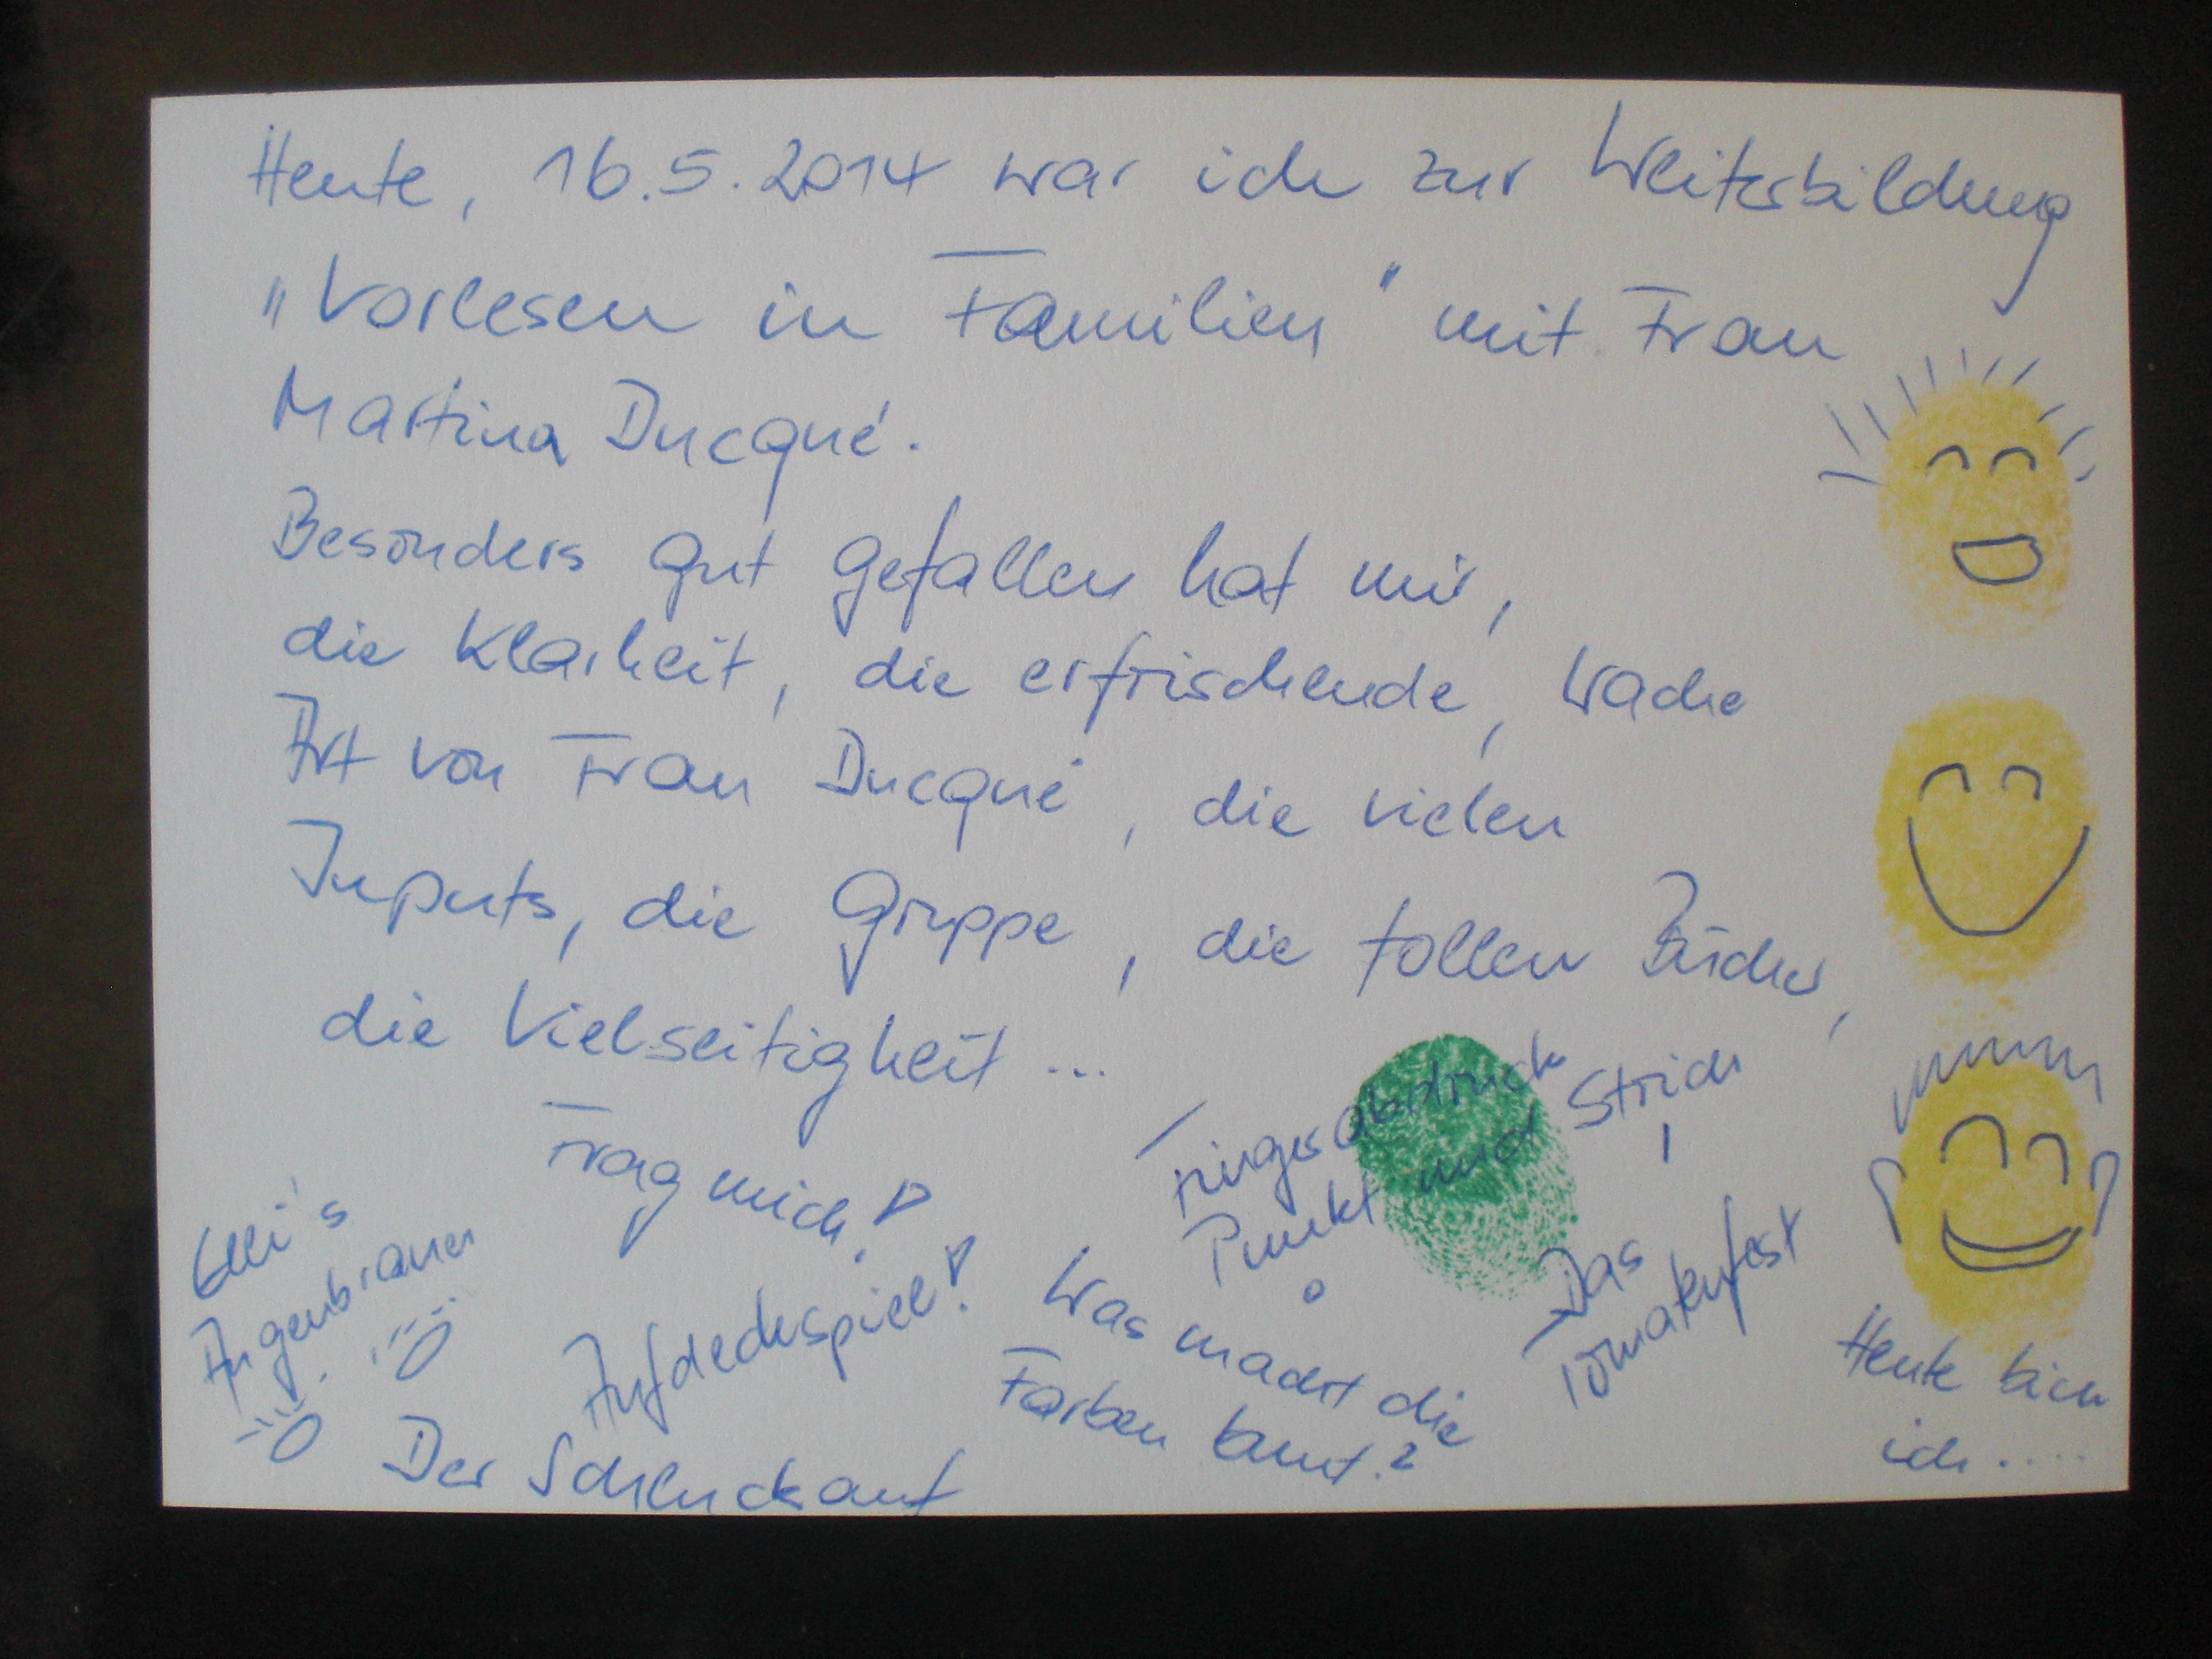 Heute, 16.5.2014 war ich zur Weiterbildung
„Vorlesen in Familien" mit Frau
Martina Ducqué.
Besonders gut gefallen hat mir,
die Klarheit, die erfrischende, wache
Art von Frau Ducqué, die vielen
Inputs, die Gruppe, die tollen Bücher,
die Vielseitigkeit ...
Frag mich!
Elli's
Augenbrauen
Aufdeckspiel!
Der Schluckauf
Fingerabdruck
Punkt und Strich
Was macht die
Farben bunt?
Das
Tomatenfest
Heute bin
ich.....